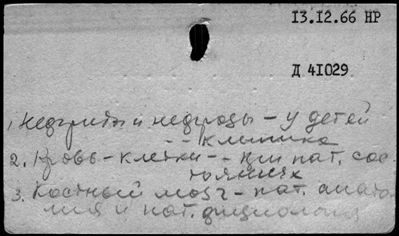 13.12.66 НР
Д 41029
1. Нефриты и нефрозы – у детей
-- клиника
2. Кровь – клетки -- при пат. сос-
тояниях
3. Костный мозг – пат. анато-
мия и пат. физиология